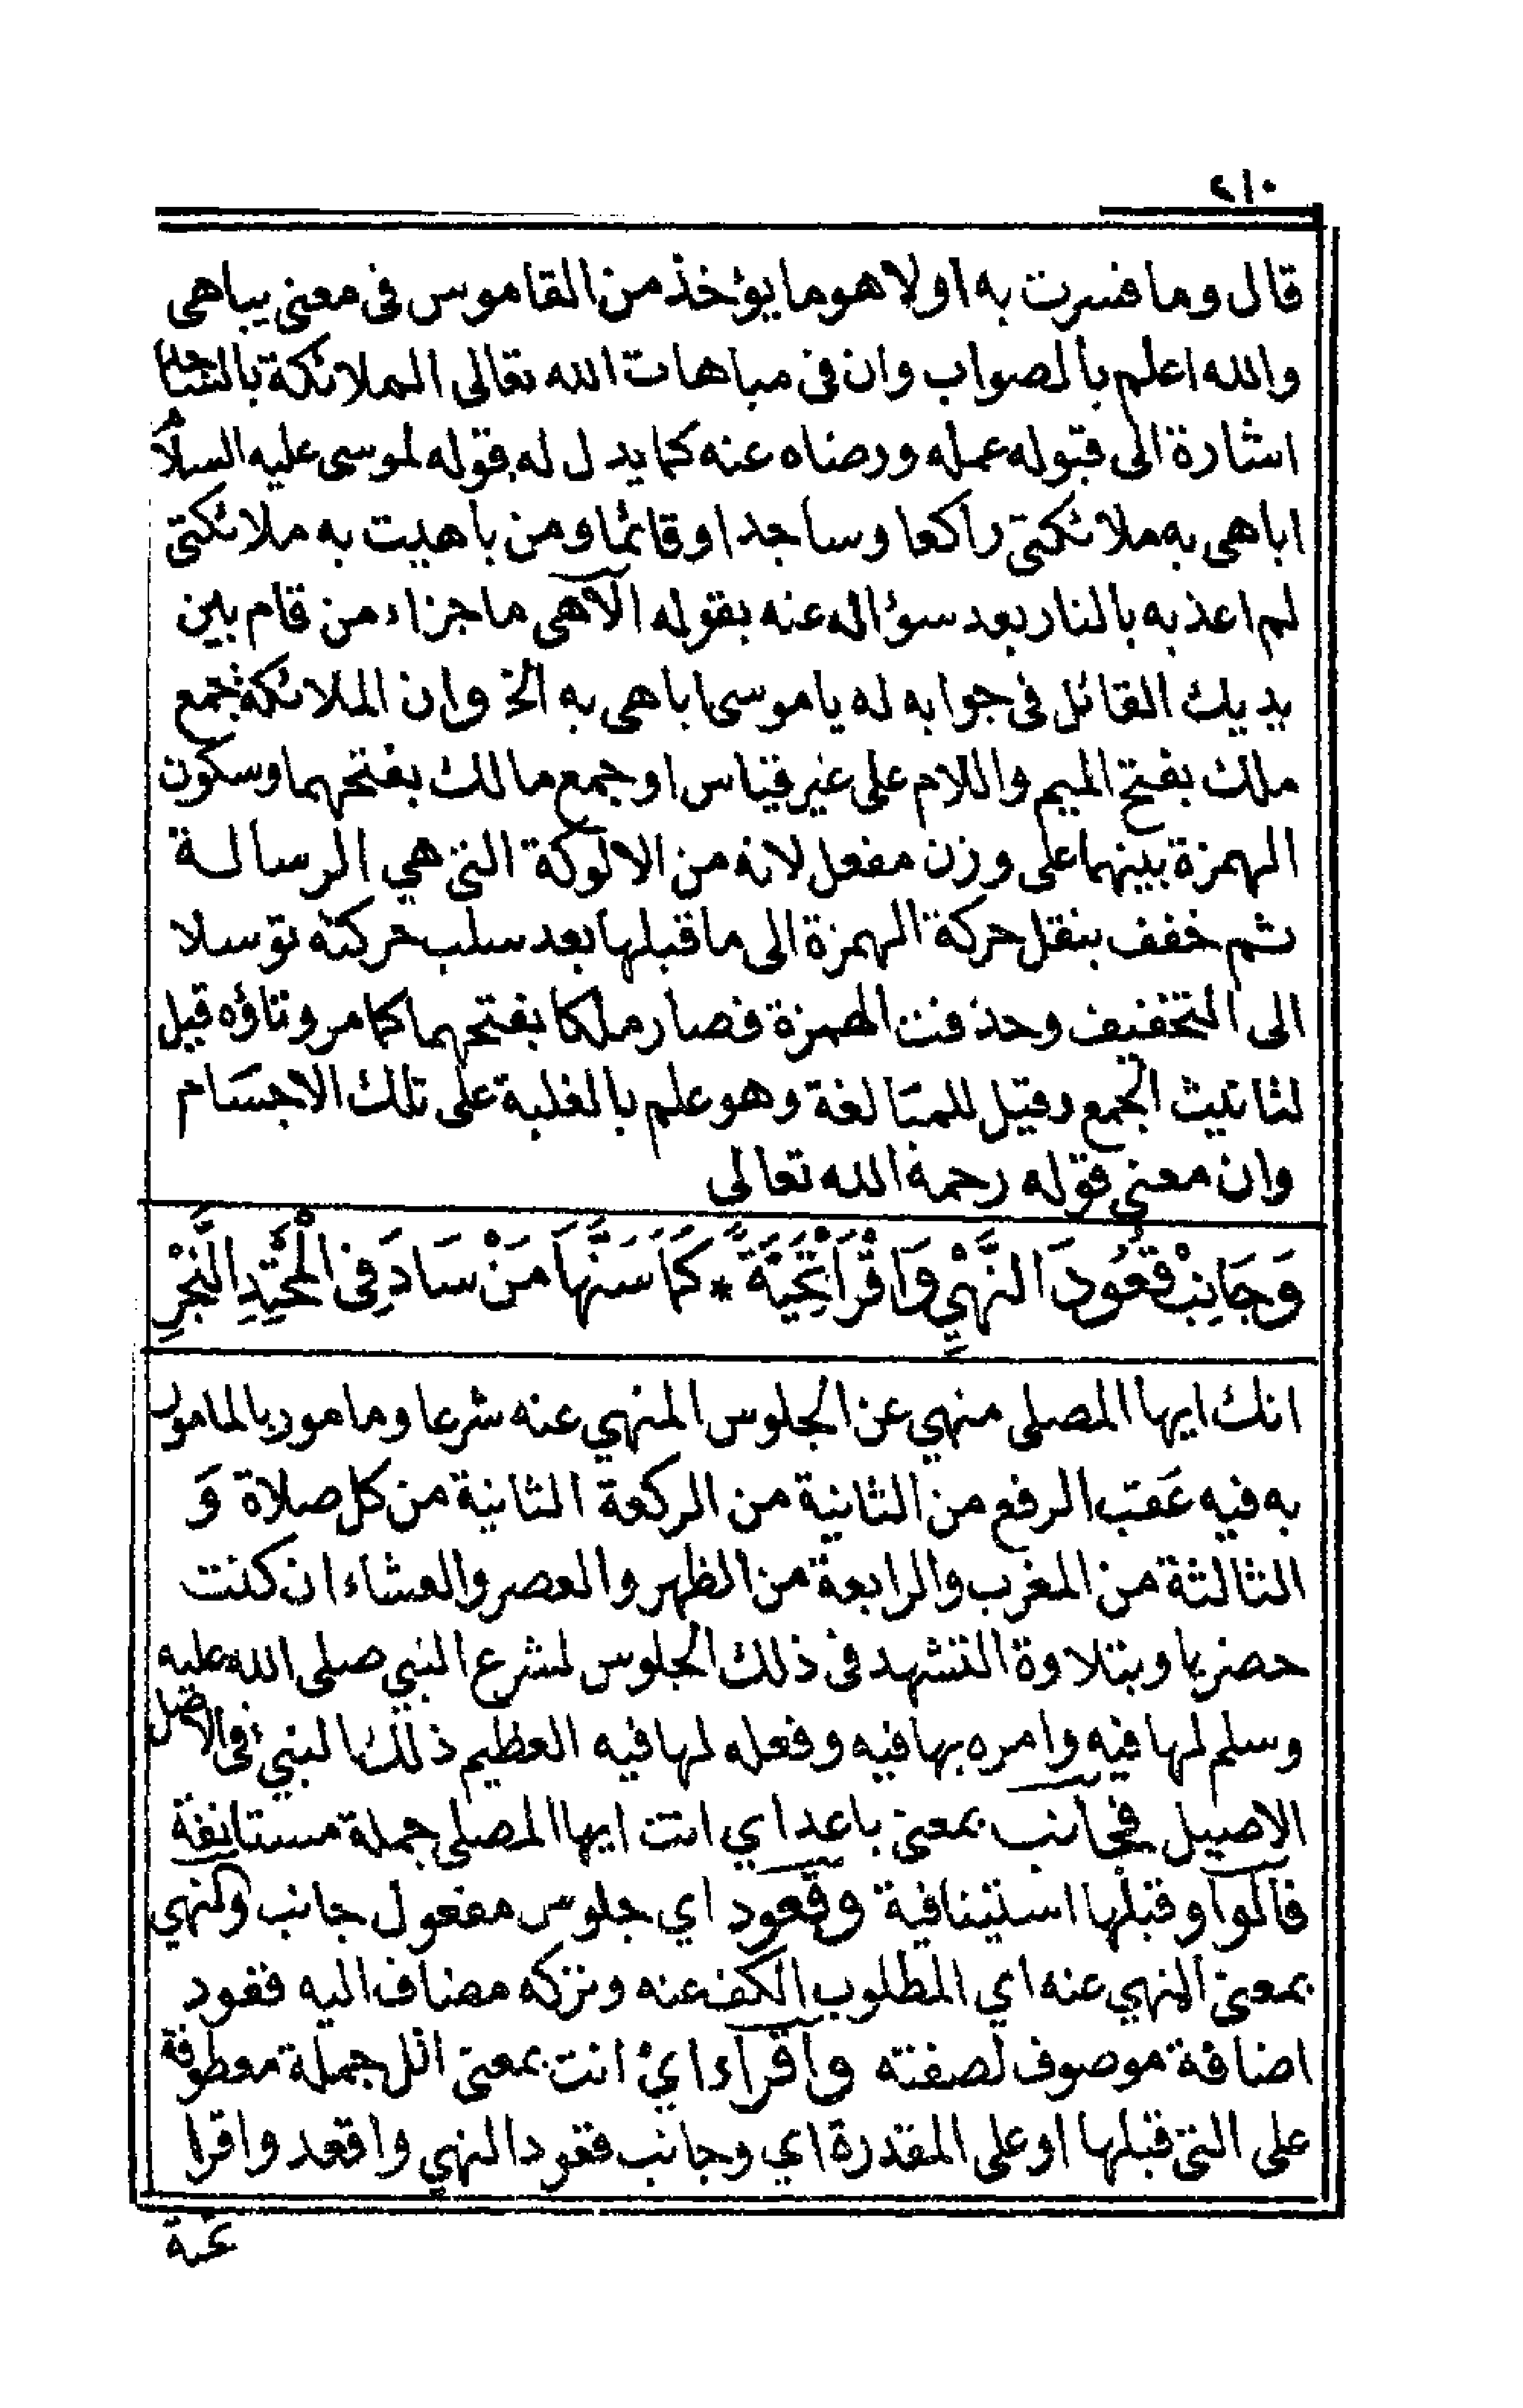 ٢١٠
قال وما فسرت به اولا هو ما يؤخذ من القاموس فى معنى يباهى
والله اعلم بالصواب وان فى مباهات الله تعالى الملائكة بالساجد
اشارة الى قبوله عمله ورضاه عنه كما يدل له قوله لموسى عليه السلام
اباهى به ملائكتى راكعا وساجدا وقائما ومن باهيت به ملائكتى
لم اعذبه بالنار بعد سؤاله عنه بقوله الآهى ما جزاء من قام بين
يديك القائل فى جوابه له يا موسى اباهى به الخ وان الملائكة جمع
ملك بفتح الميم واللام على غير قياس او جمع مالك بفتحهما وسكون
الهمزة بينهما على وزن مفعل لانه من الالوكة التى هي الرسالة
ثم خفف بنقل حركة الهمزة الى ما قبلها بعد سلب حركته توسلا
الى التخفيف وحذفت الهمزة فصار ملكا بفتحهما كما مر وتاؤه قيل
لتانيث الجمع وقيل للمبالغة وهو علم بالغلبة على تلك الاجسام
وان معنى قوله رحمة الله تعالى
وَجَانِبْ قُعُودَ النَّهْيِ وَاقْرَأْ تَحِيَّةً * كَمَا سَنَّهَا مَنْ سَادَ فِى الْمَحْتِدِ النَّجْرِ
انك ايها المصلى منهي عن الجلوس المنهي عنه شرعا ومامور بالمامور
به فيه عَقب الرفع من الثانية من الركعة الثانية من كل صلاة وَ
الثالثة من المغرب والرابعة من الظهر والعصر والعشاء ان كنت
حضريا وبتلاوة التشهد فى ذلك الجلوس لشرع النبي صلى الله عليه
وسلم لها فيه وامره بها فيه وفعله لها فيه العظيم ذلك النبي فى الاصل
الاصيل فجانب بمعنى باعد اي انت ايها المصلى جملة مستانفة
فالواو قبلها استينافية وقعود اي جلوس مفعول جانب والنهي
بمعنى المنهي عنه اي المطلوب الكف عنه وتركه مضاف اليه فقعود
اضافة موصوف لصفته واقراء اي انت بمعنى اتل جملة معطوفة
على التى قبلها او على المقدرة اي وجانب قعود النهي واقعد واقرا